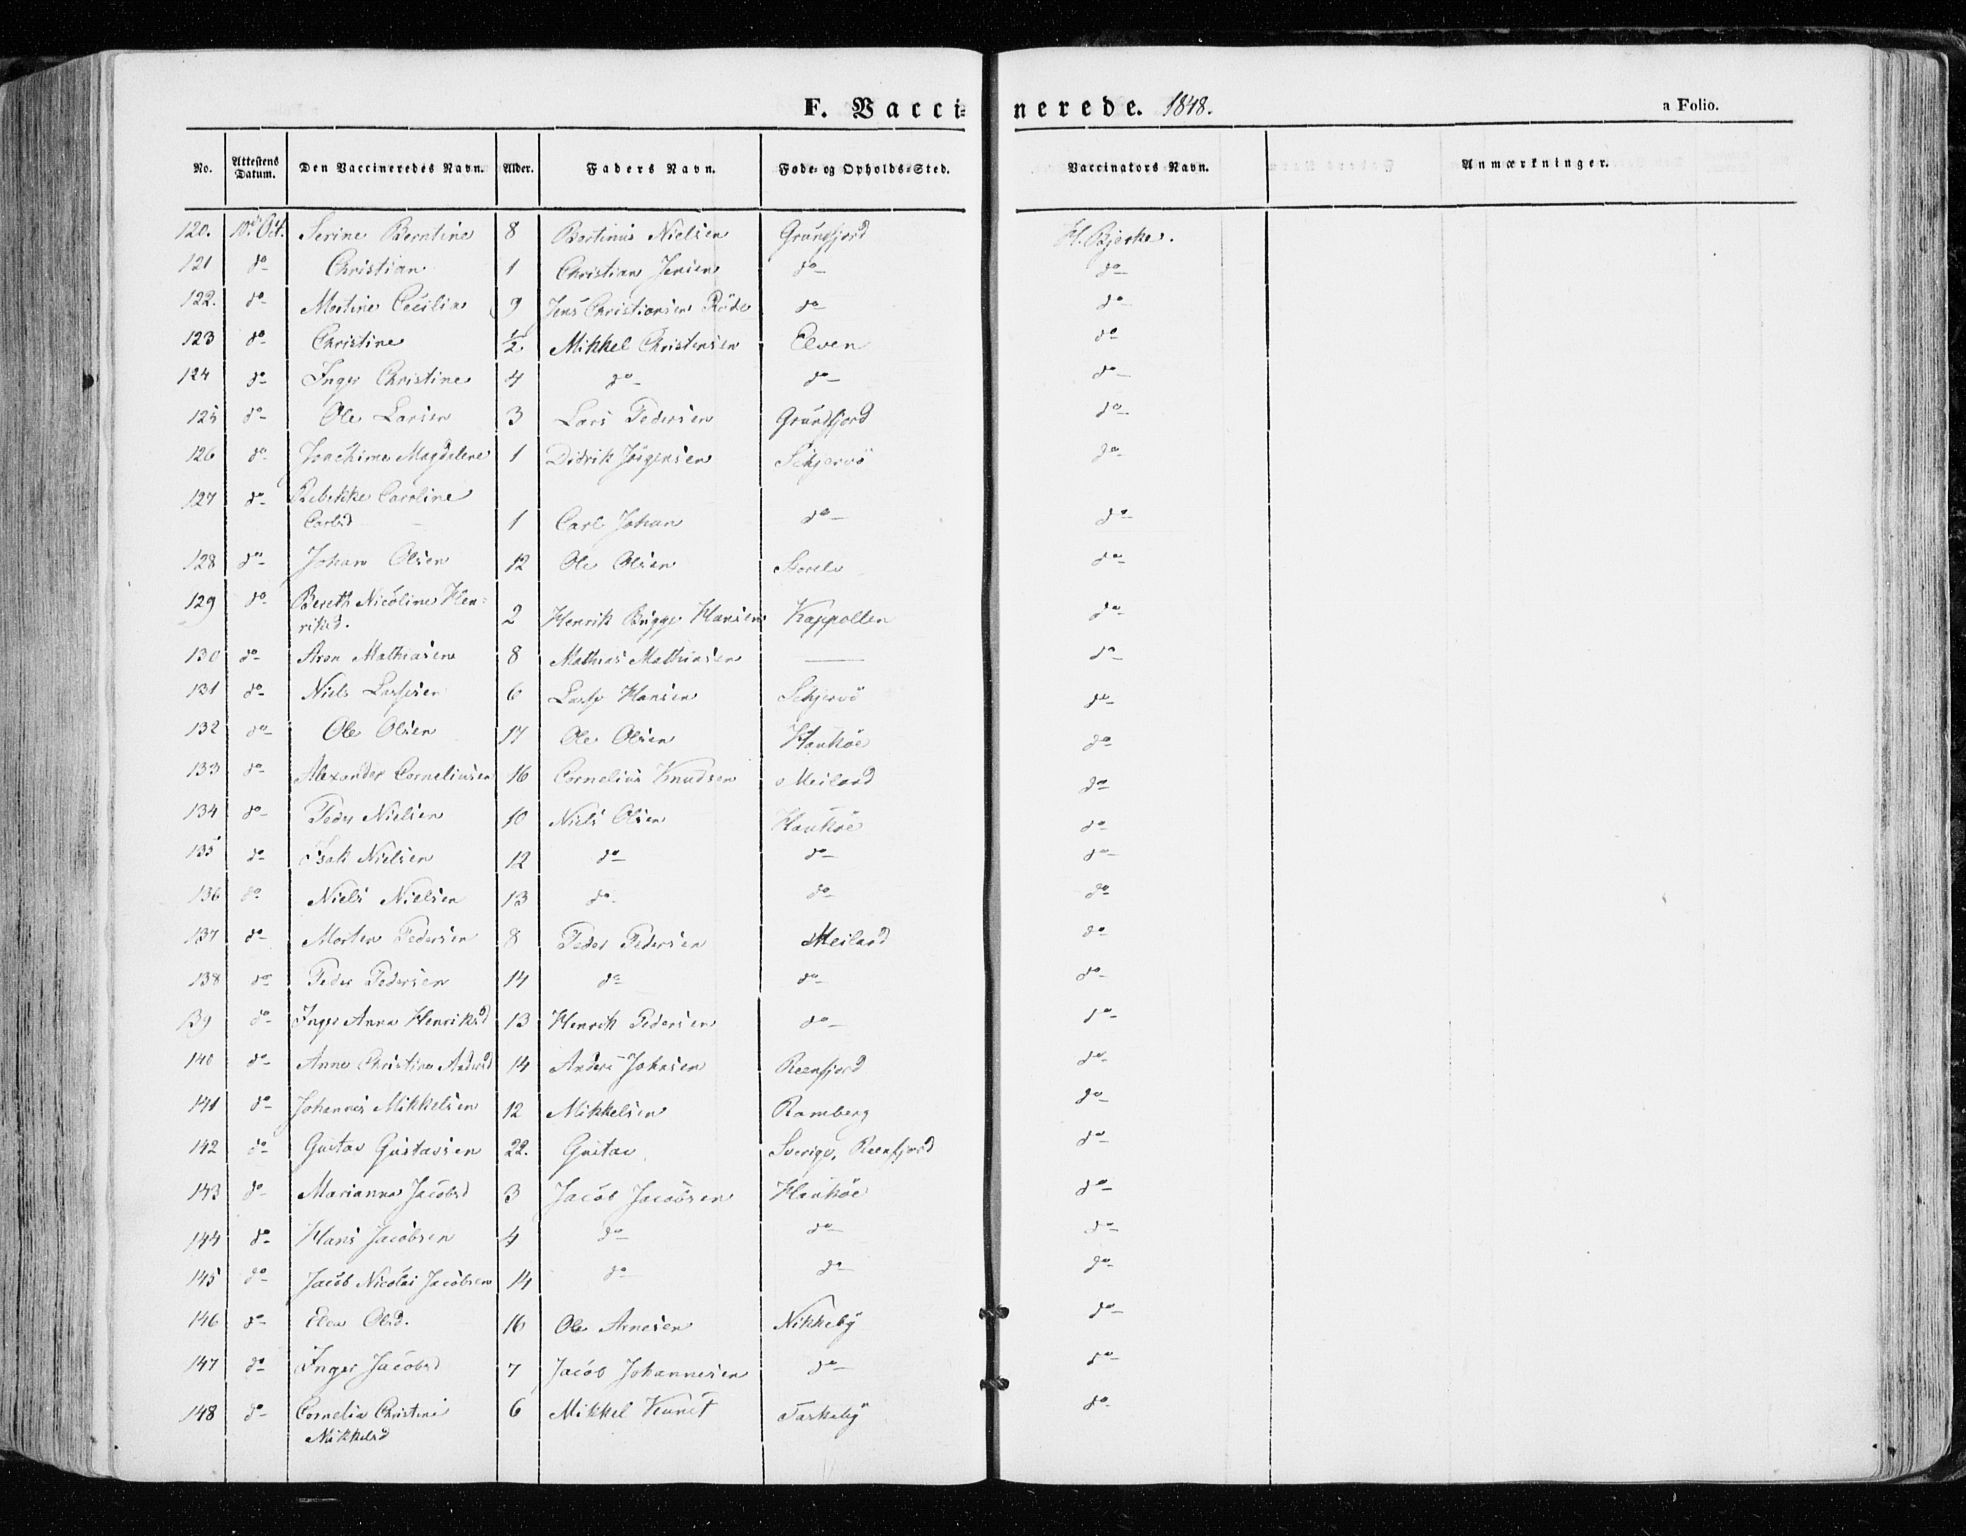 F. Vaccinerede. 1848.
a Folio.
No. Attestens Datum. Den Vaccineredes Navn. Alder. Faders Navn. Føde- og Opholds-Sted. Vaccinators Navn. Anmærkninger.
120. 10de Oct. Serine Berntine 8 Bertinus Nielsen Grunfjord H. Bjerke.
121 do Christian 1 Christian Jensen do do
122. do Martine Cecilia 9 Jens Christiansen Röde do do
123 do Christine 1/2 Mikkel Christensen Elven do
124 do Inger Christine 4 do do do
125 do Ole Larsen 3 Lars Pedersen Grundfjord do
126 do Joachime Magdalene 1 Didrik Jörgensen Schjervö do
127 do Rebekke Caroline
Carlsd 1 Carl Johan do do
128 do Johan Olsen 12 Ole Olsen Storelv do
129 do Bereth Nicoline Hen-
riksd. 2 Henrik Bugge Hansen Kappollen do
130 do Aron Mathiasen 8 Mathias Mathiasen — do
131 do Niels Larssen 6 Lars Hansen Schjervö do
132 do Ole Olsen 17 Ole Olsen Haukøe do
133 do Alexander Corneliusen 16 Cornelius Knudsen Meiland do
134 do Peder Nielsen 10 Niels Olsen Haukøe do
135 do Isak Nielsen 12 do do do
136 do Niels Nielsen 13 do do do
137 do Morten Pedersen 8 Peder Pedersen Meiland do
138 do Peder Pedersen 14 do do do
139 do Inger Anna Henriksd 13 Henrik Pedersen do do
140 do Anne Christine Andersd 14 Anders Johnsen Reenfjord do
141 do Johannes Mikkelsen 12 Mikkelsen Ramberg do
142 do Gustav Gustavsen 22. Gustav Sverige, Reenfjord do
143 do Marianna Jacobsd 3 Jacob Jacobsen Haukøe do
144 do Hans Jacobsen 4 do do do
145 do Jacob Nicolai Jacobsen 14 do do do
146 do Elen Olsd. 16 Ole Arnesen Nikkeby do
147 do Inger Jacobsd 7 Jacob Johannesen do do
148 do Cornelia Christine 6 Mikkel Kunst Taskeby do
Mikkelsd